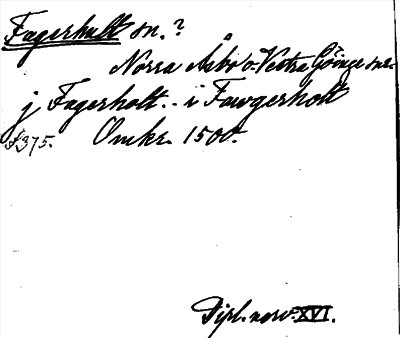 Fagerhult sn.?
Norra Åsbo o. Vestra Göinge snr.
j Fagerholt. - i Fawgerholt
s375. Omkr. 1500.
Dipl. norv. XVI.